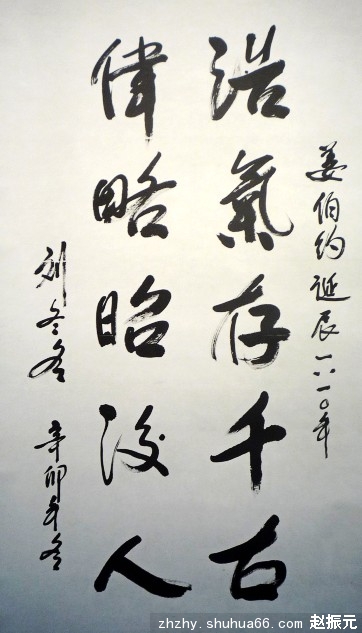 姜伯约诞辰一八一〇年
浩氣存千古
偉略昭後人
刘冬冬 辛卯年冬
zhzhy.shuhua66.com 赵振元